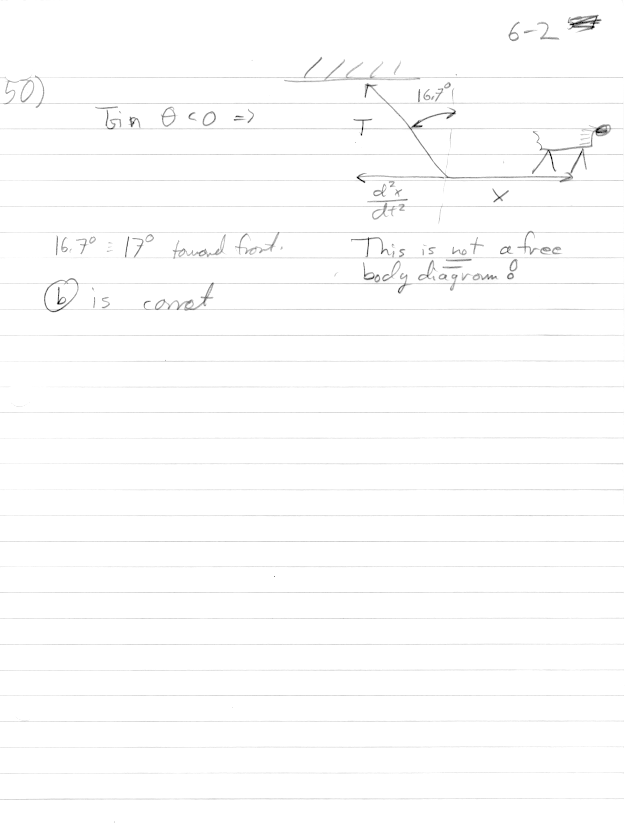 6-2
50)
16.7°
Tsin θ < 0 =>
T
d²x
dt²
x
16.7° = 17° toward front.
This is not a free
body diagram!
(b) is correct